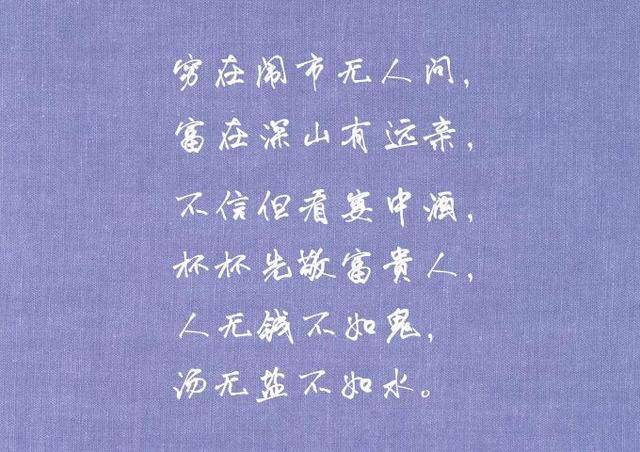 穷在闹市无人问，
富在深山有远亲，
不信但看宴中酒，
杯杯先敬富贵人，
人无钱不如鬼，
汤无盐不如水。